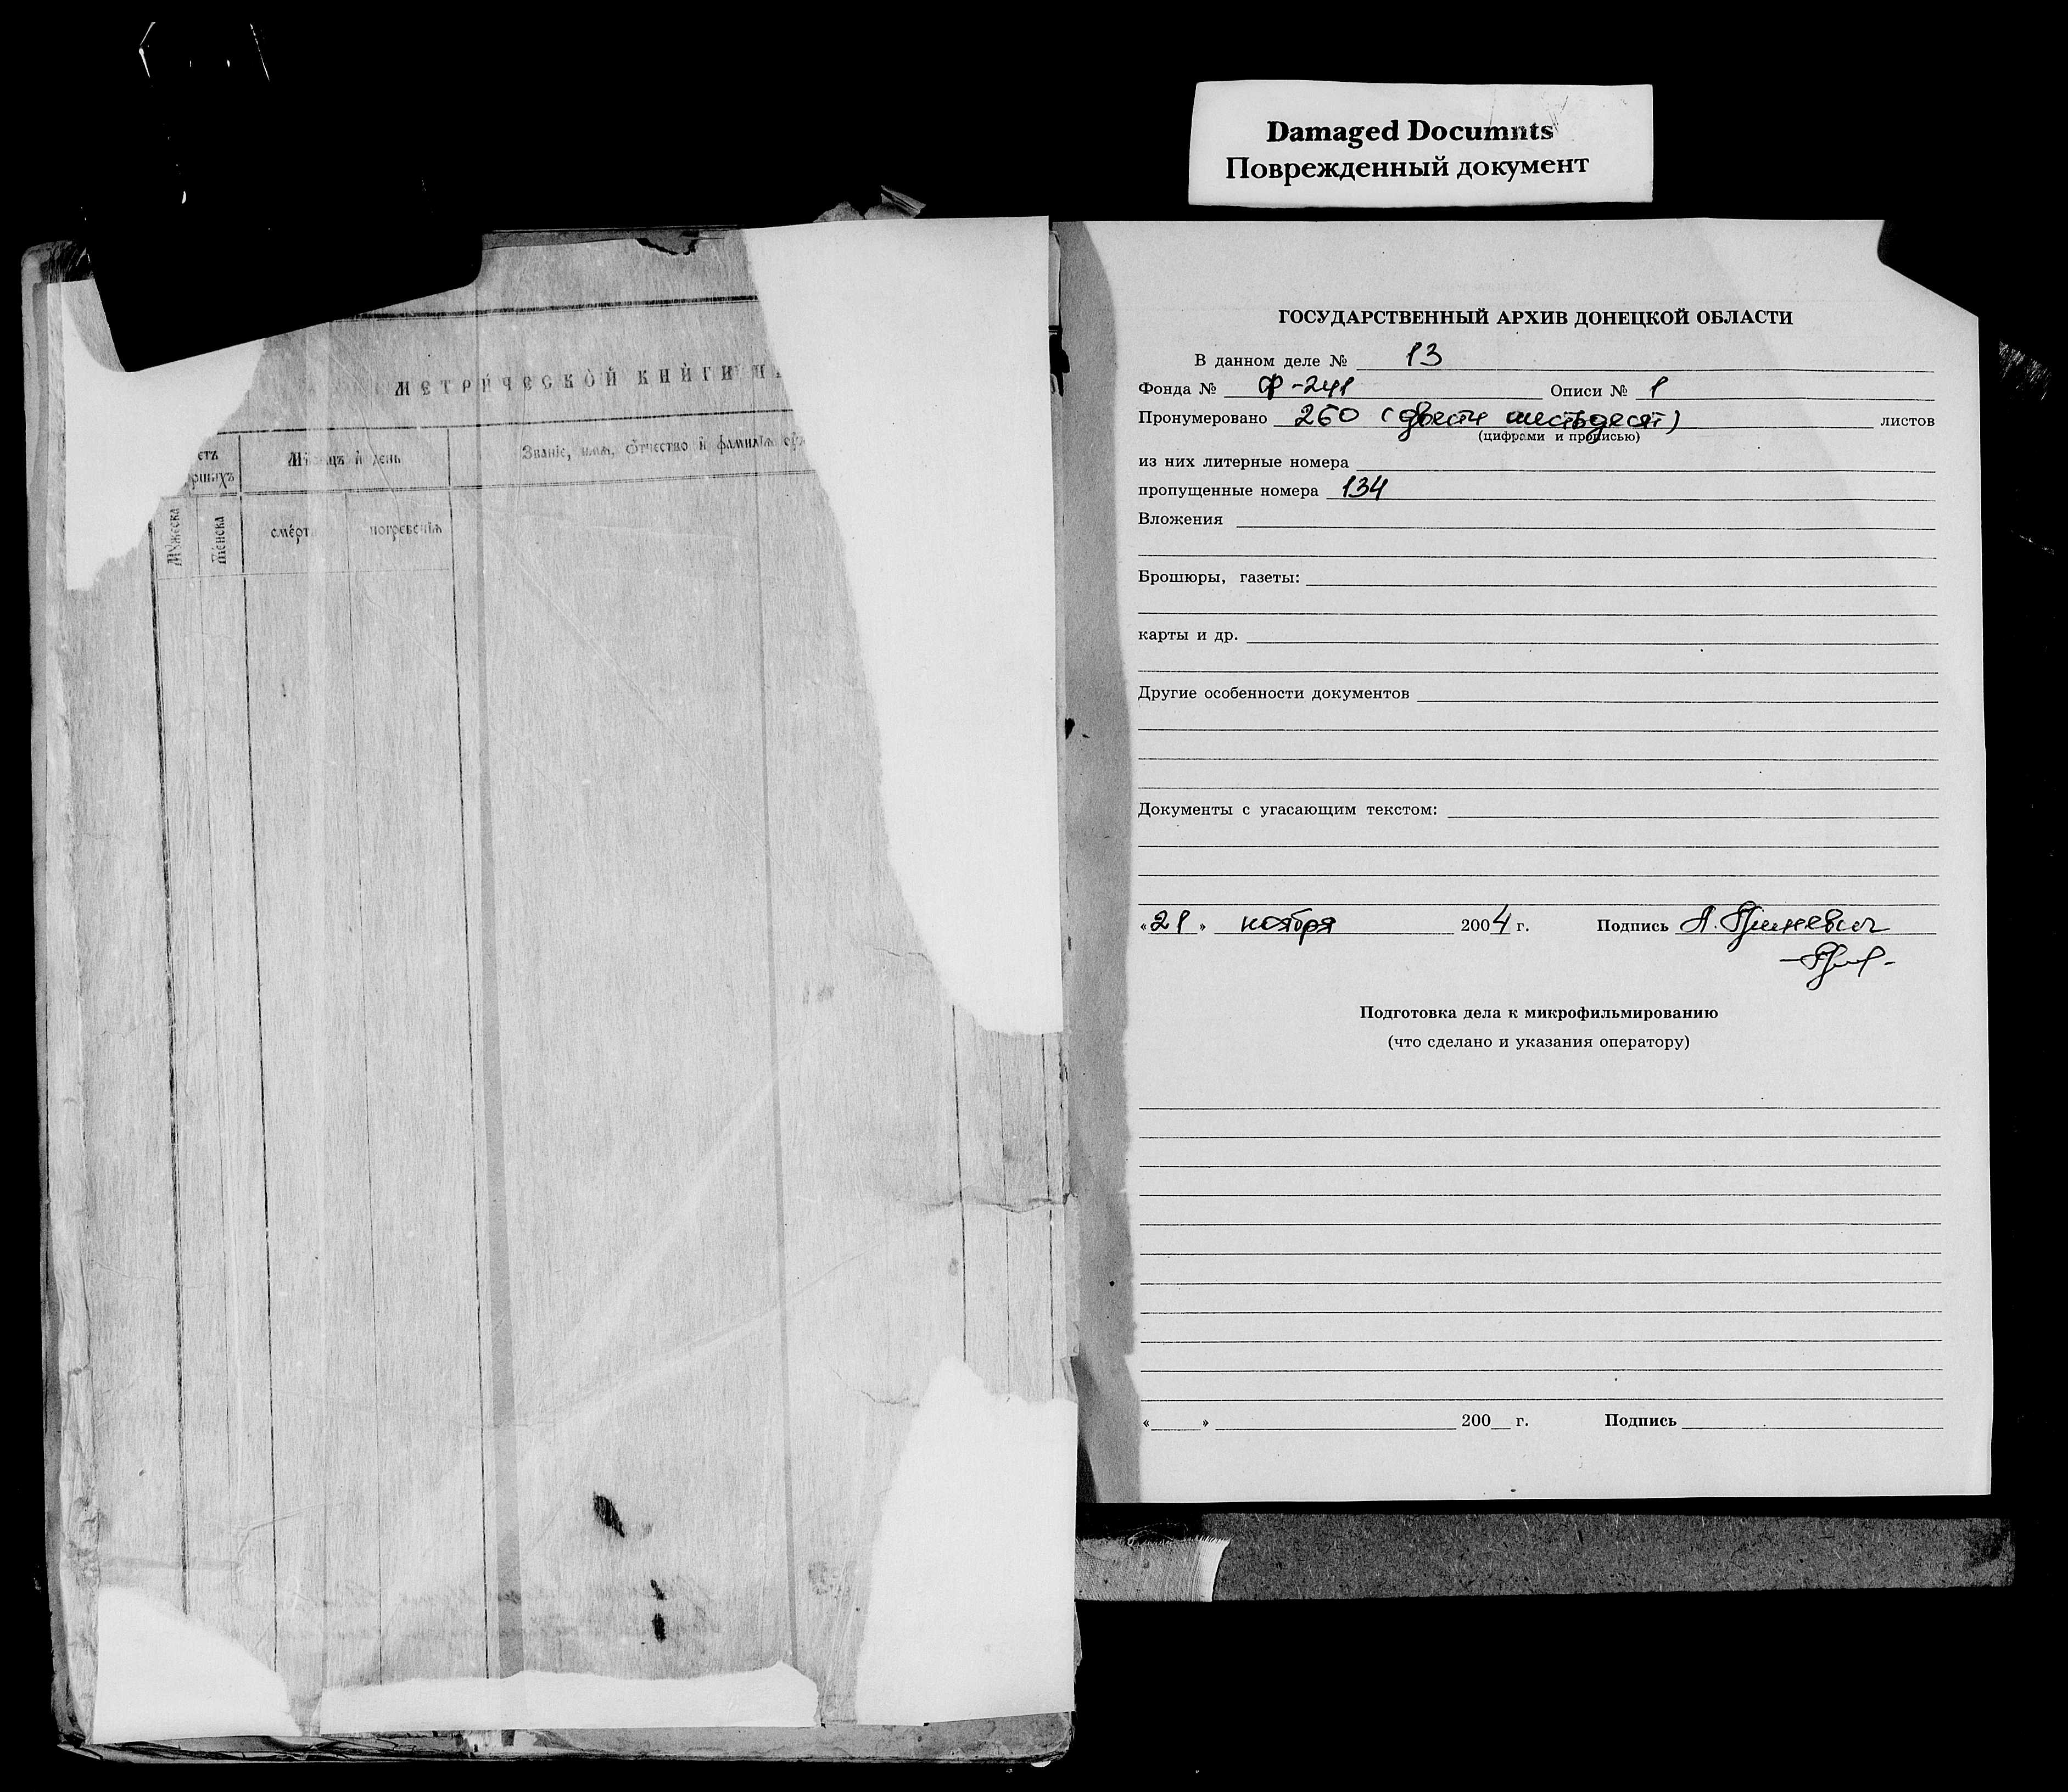 Damaged Documnts
Поврежденный документ
МЕТРИ́ЧЕСКОЙ КНИ́ГИ
Мѣсѧцъ и҆ день
Званїе, имѧ, ѻтчество и҆ фамилїѧ
Мꙋжеска
Женска
сме́рт
погребенїѧ
ГОСУДАРСТВЕННЫЙ АРХИВ ДОНЕЦКОЙ ОБЛАСТИ
В данном деле № 13
Фонда № Ф-241 Описи № 1
Пронумеровано 260 (двести шестьдесят) листов
(цифрами и прописью)
из них литерные номера
пропущенные номера 134
Вложения
Брошюры, газеты:
карты и др.
Другие особенности документов
Документы с угасающим текстом:
«21» ноября 2004 г. Подпись
Подготовка дела к микрофильмированию
(что сделано и указания оператору)
« » 200 г. Подпись